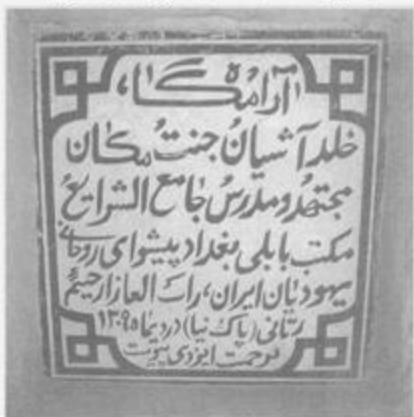 آرامگاه،
خلد آشیان جنت مکان
مجتهد و مدرس جامع الشرایع
مکتب بابلی بغداد پیشوای روحانی
یهودیان ایران، راب العازار حیم
ربانی (پاک نیا) در دیماه ۱۳۰۹۵
برحمت ایزدی پیوست